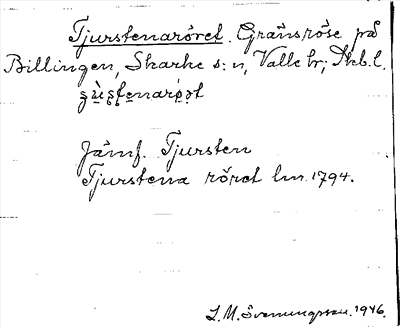 Tjurstenaröret. Gränsröse på
Billingen, Skarke s:n, Valle hr; Skb.l.
Jämf. Tjursten
Tjurstena röret lm. 1794.
L. M. Svenungsson. 1946.